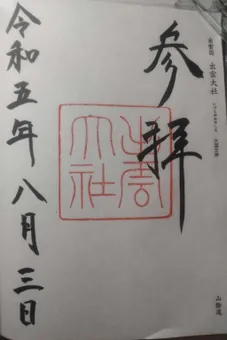 出雲国 出雲大社
山陰道
参拝
出雲
大社
令和五年八月三日